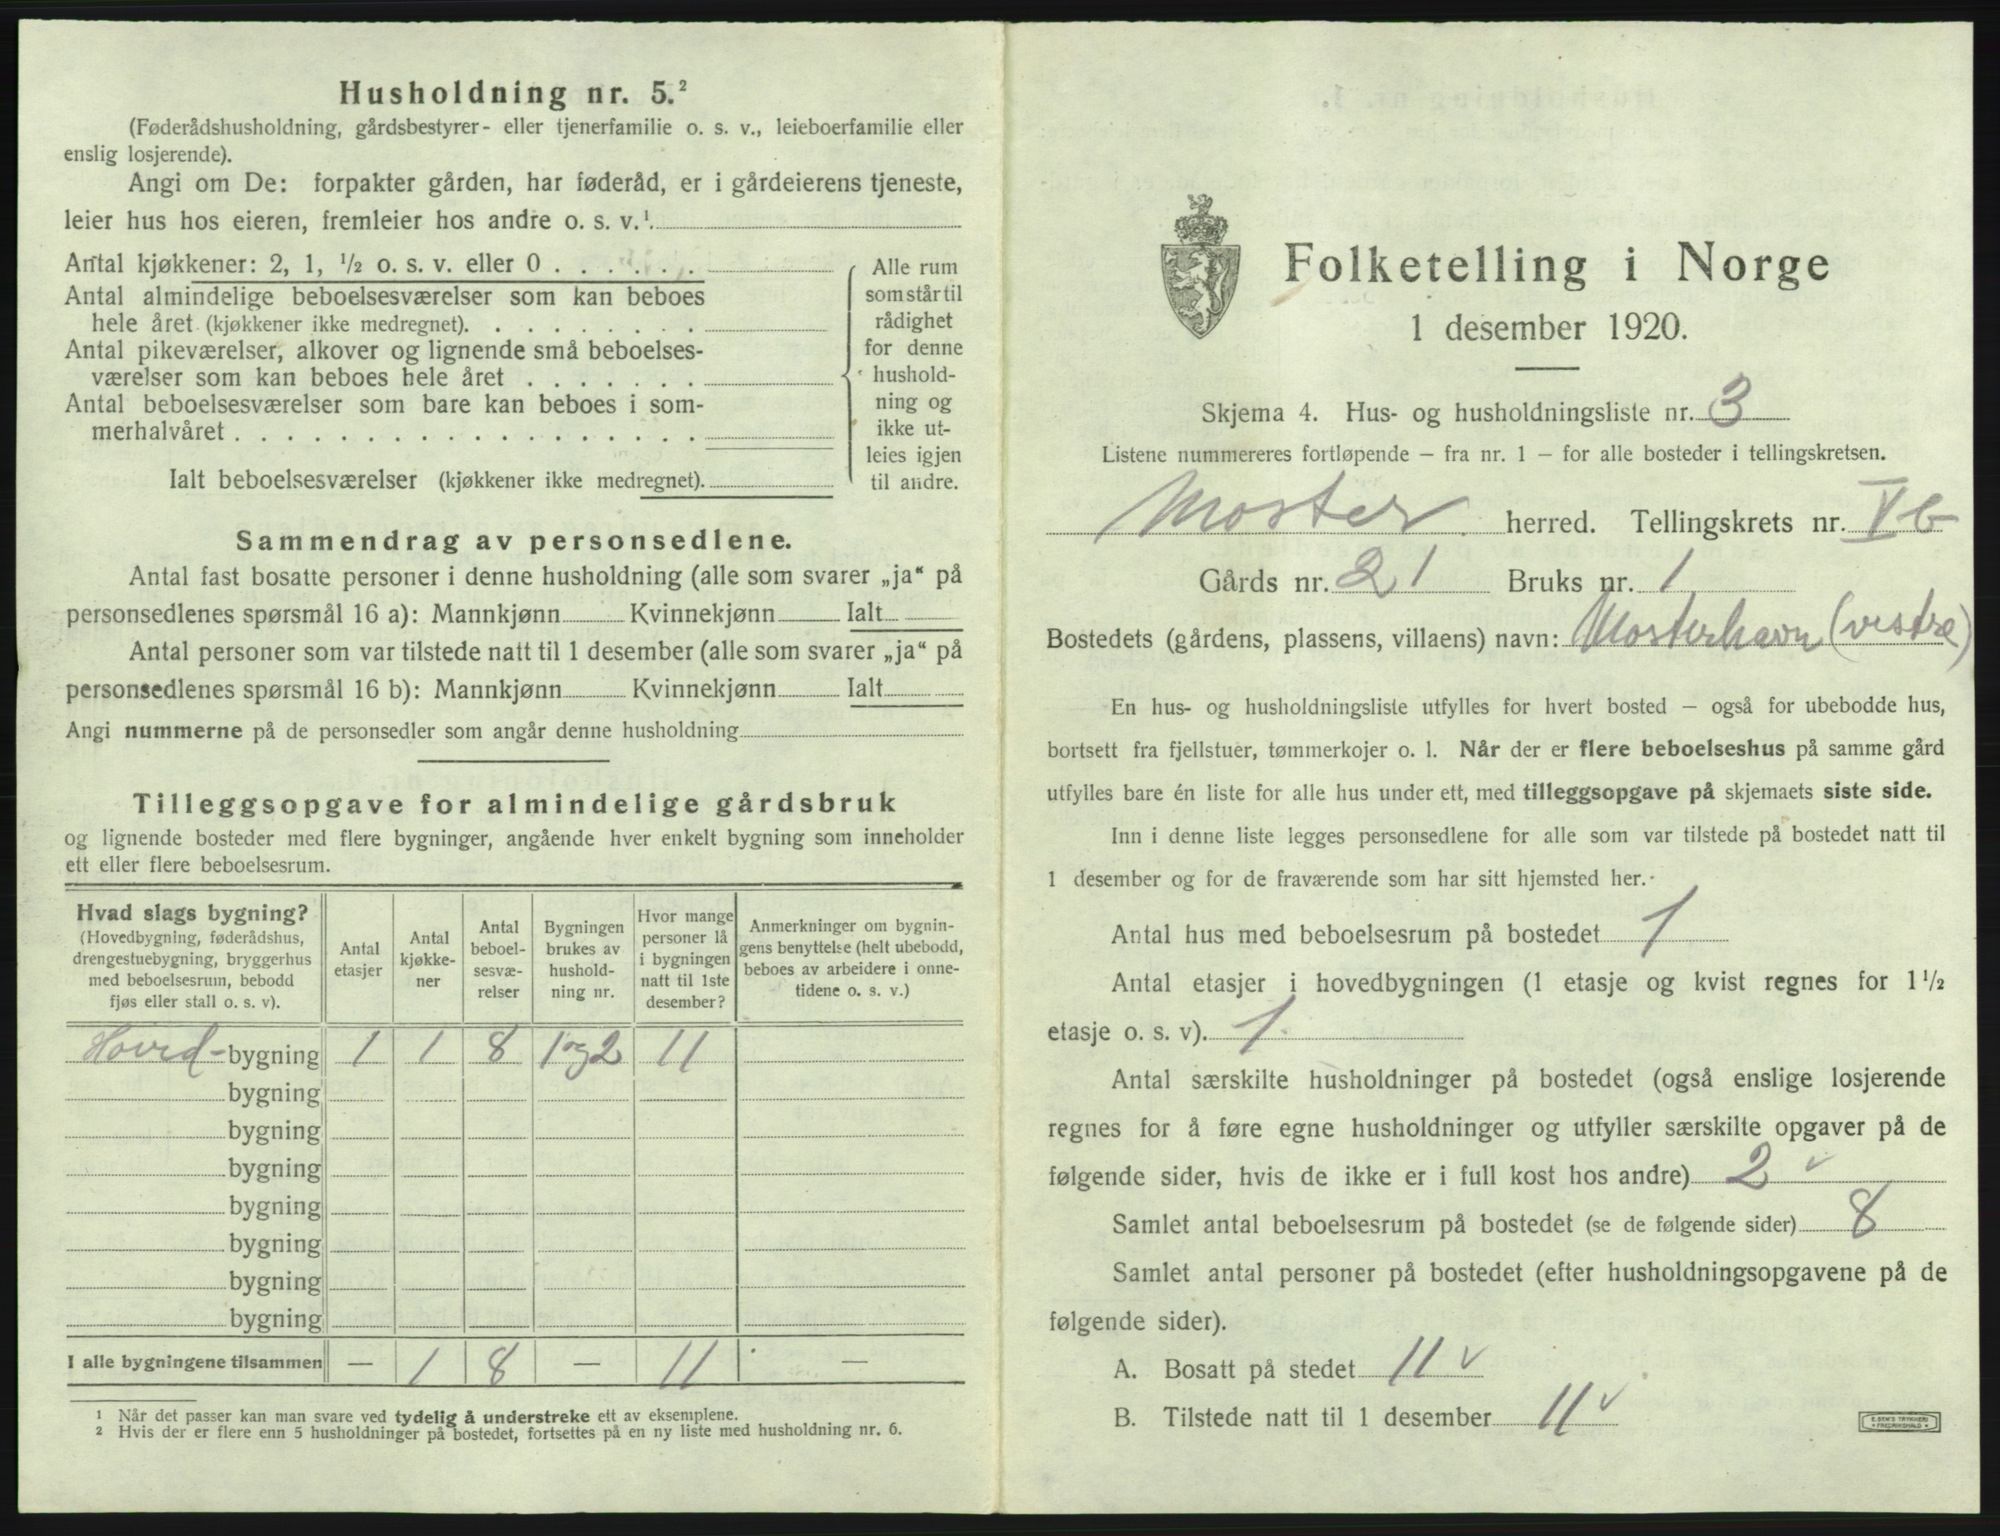 Husholdning nr. 5.²
(Føderådshusholdning, gårdsbestyrer- eller tjenerfamilie o. s. v., leieboerfamilie eller
enslig losjerende).
Angi om De: forpakter gården, har føderåd, er i gårdeierens tjeneste,
leier hus hos eieren, fremleier hos andre o. s. v.¹
Antal kjøkkener: 2, 1, ½ o. s. v. eller 0 . . . . . .
Antal almindelige beboelsesværelser som kan beboes
hele året (kjøkkener ikke medregnet). . . . . . . . .
Antal pikeværelser, alkover og lignende små beboelses-
værelser som kan beboes hele året . . . . . . .
Antal beboelsesværelser som bare kan beboes i som-
merhalvåret . . . . . . . . . . . . . . . . . .
Ialt beboelsesværelser (kjøkkener ikke medregnet).
Alle rum
som står til
rådighet
for denne
hushold-
ning og
ikke ut-
leies igjen
til andre.
Sammendrag av personsedlene.
Antal fast bosatte personer i denne husholdning (alle som svarer „ja“ på
personsedlenes spørsmål 16 a): Mannkjønn Kvinnekjønn Ialt
Antal personer som var tilstede natt til 1 desember (alle som svarer „ja“ på
personsedlenes spørsmål 16 b): Mannkjønn Kvinnekjønn Ialt
Angi nummerne på de personsedler som angår denne husholdning
Tilleggsopgave for almindelige gårdsbruk
og lignende bosteder med flere bygninger, angående hver enkelt bygning som inneholder
ett eller flere beboelsesrum.
Hvad slags bygning?
(Hovedbygning, føderådshus,
drengestuebygning, bryggerhus
med beboelsesrum, bebodd
fjøs eller stall o. s. v).
Antal
etasjer
Antal
kjøkke-
ner
Antal
beboel-
sesvæ-
relser
Bygningen
brukes av
hushold-
ning nr.
Hvor mange
personer lå
i bygningen
natt til 1ste
desember?
Anmerkninger om bygnin-
gens benyttelse (helt ubebodd,
beboes av arbeidere i onne-
tidene o. s. v.)
Hovedbygning 1 1 8 1 og 2 11
bygning
bygning
bygning
bygning
bygning
bygning
bygning
I alle bygningene tilsammen — 1 8 — 11 —
¹ Når det passer kan man svare ved tydelig å understreke ett av eksemplene.
² Hvis der er flere enn 5 husholdninger på bostedet, fortsettes på en ny liste med husholdning nr. 6.
Folketelling i Norge
1 desember 1920.
Skjema 4. Hus- og husholdningsliste nr. 3
Listene nummereres fortløpende – fra nr. 1 – for alle bosteder i tellingskretsen.
Moster herred. Tellingskrets nr. V b
Gårds nr. 21 Bruks nr. 1
Bostedets (gårdens, plassens, villaens) navn: Mosterhavn (vestre)
En hus- og husholdningsliste utfylles for hvert bosted – også for ubebodde hus,
bortsett fra fjellstuer, tømmerkojer o. l. Når der er flere beboelseshus på samme gård
utfylles bare én liste for alle hus under ett, med tilleggsopgave på skjemaets siste side.
Inn i denne liste legges personsedlene for alle som var tilstede på bostedet natt til
1 desember og for de fraværende som har sitt hjemsted her.
Antal hus med beboelsesrum på bostedet 1
Antal etasjer i hovedbygningen (1 etasje og kvist regnes for 1½
etasje o. s. v). 1
Antal særskilte husholdninger på bostedet (også enslige losjerende
regnes for å føre egne husholdninger og utfyller særskilte opgaver på de
følgende sider, hvis de ikke er i full kost hos andre) 2 v
Samlet antal beboelsesrum på bostedet (se de følgende sider) 8
Samlet antal personer på bostedet (efter husholdningsopgavene på de
følgende sider).
A. Bosatt på stedet 11 v
B. Tilstede natt til 1 desember 11 v